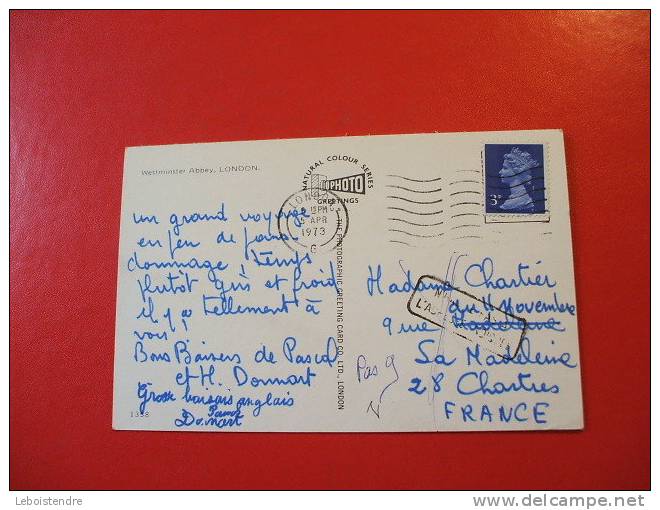 Westminster Abbey, LONDON.
NATURAL COLOUR SERIES
PHOTO
GREETINGS
THE PHOTOGRAPHIC GREETING CARD CO. LTD., LONDON
LONDON
PM
5 APR
1973
G
3P
un grand voyage
en peu de
dommage temps
plutôt gris et froid
il y a tellement à
voir
Bons Baisers de Pascal
et H. Dommart
Grosse baisais anglais
1338
Madame Chartier
du 11 Novembre
9 rue Madeleine
La Madeleine
28 Chartres
FRANCE
Pas 9
Leboistendre
delcampe.net